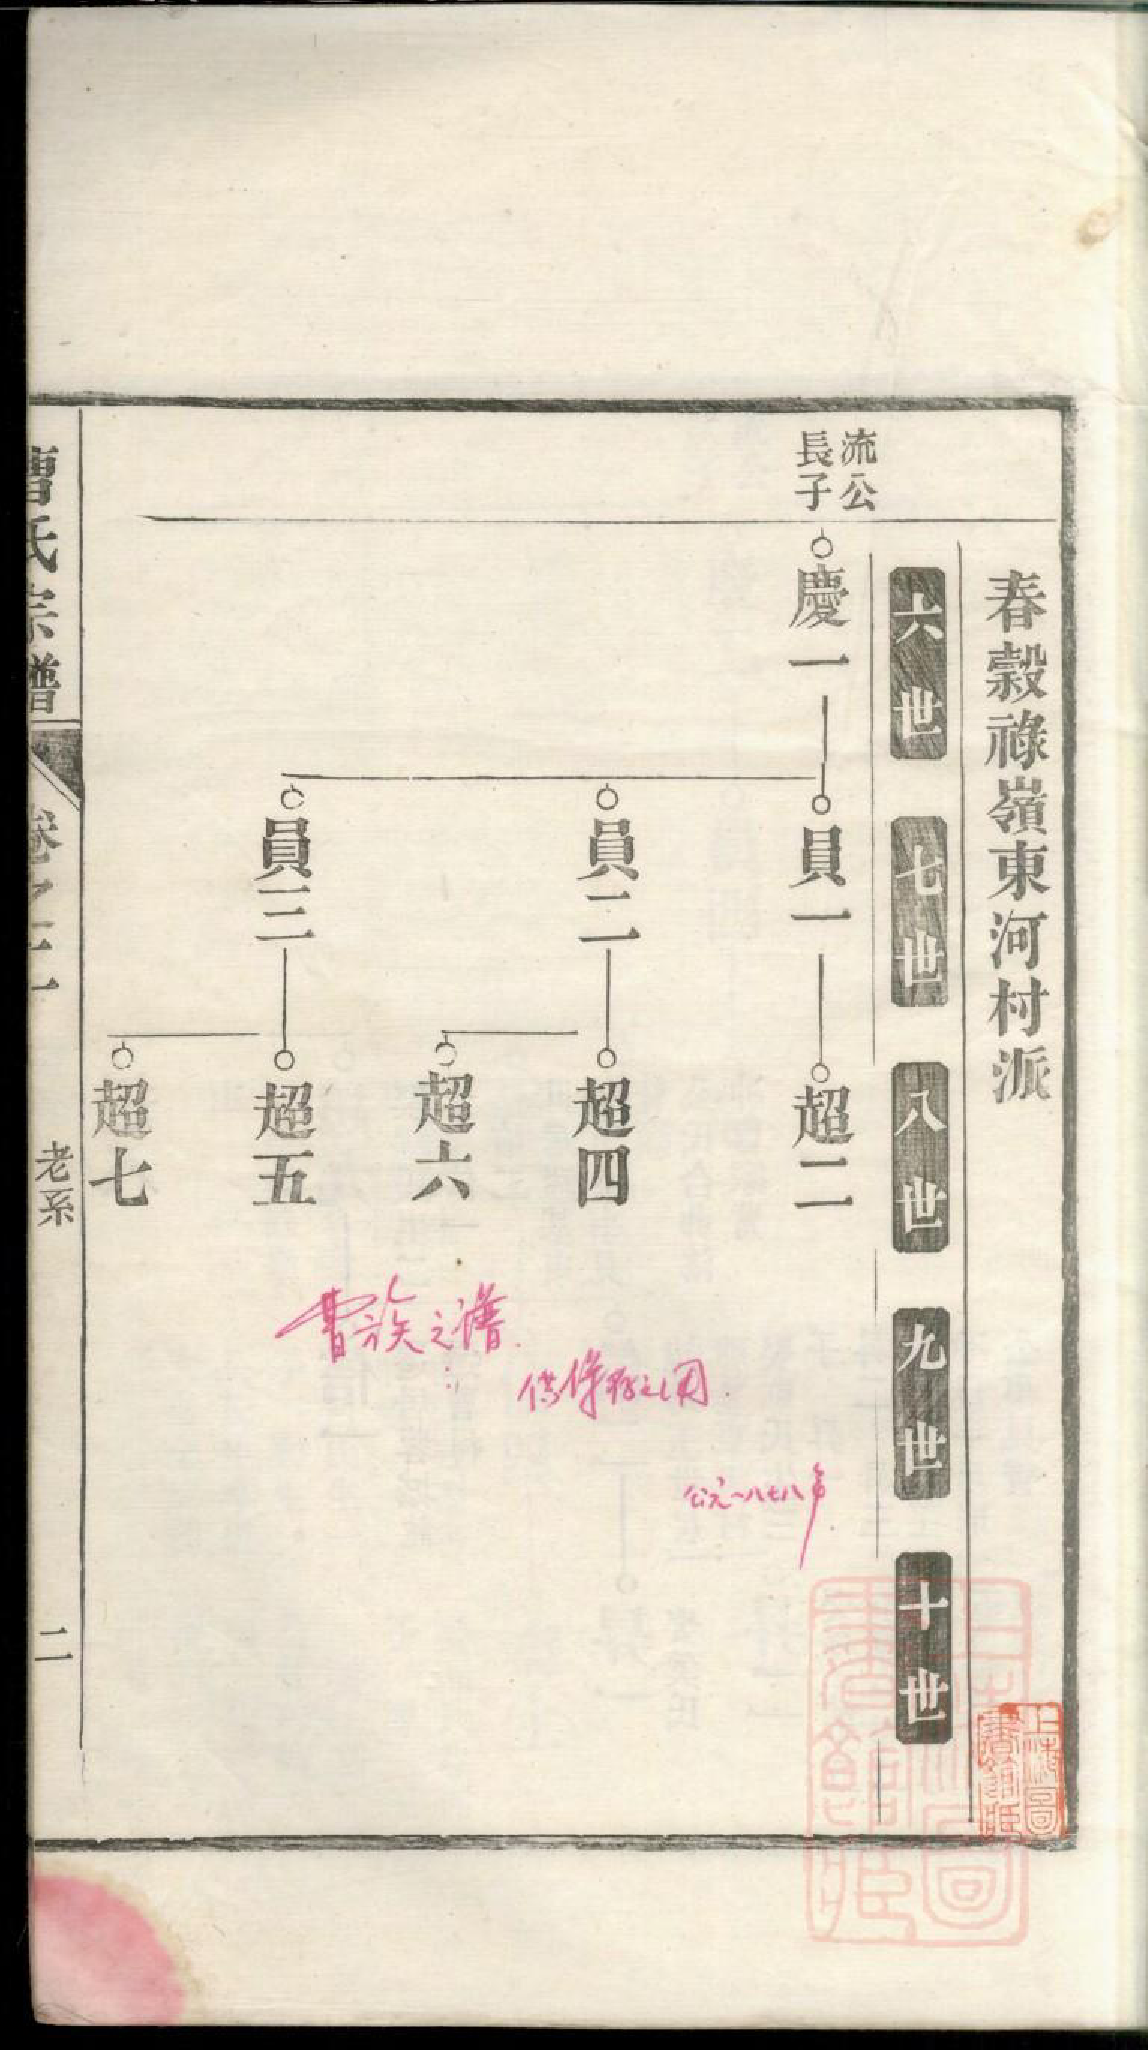 春穀祿嶺東河村派
六世
七世
八世
九世
十世
流公
長子
慶一
員一
員二
員三
超二
超四
超六
超五
超七
曹族之譜.
供保存之用.
公元一八七八年
上海圖
書館藏
上海圖
書館藏
曹氏宗譜
卷之二
老系
二